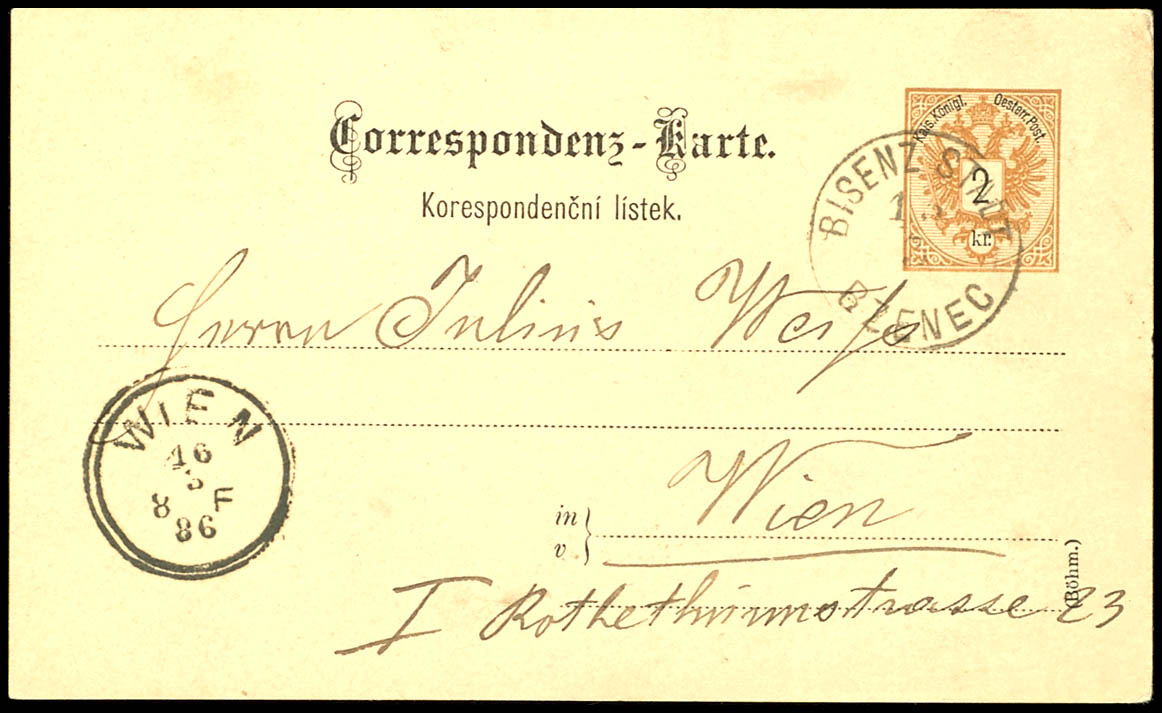 Kais. Königl. Oesterr. Post.
2
kr.
Correspondenz-Karte.
Korespondenční lístek.
BISENZ STADT
BZENEC
Herrn Julius Weiss
WIEN
16
3
8 F
86
in
v
Wien
(Böhm.)
I Rothethurmstrasse 23